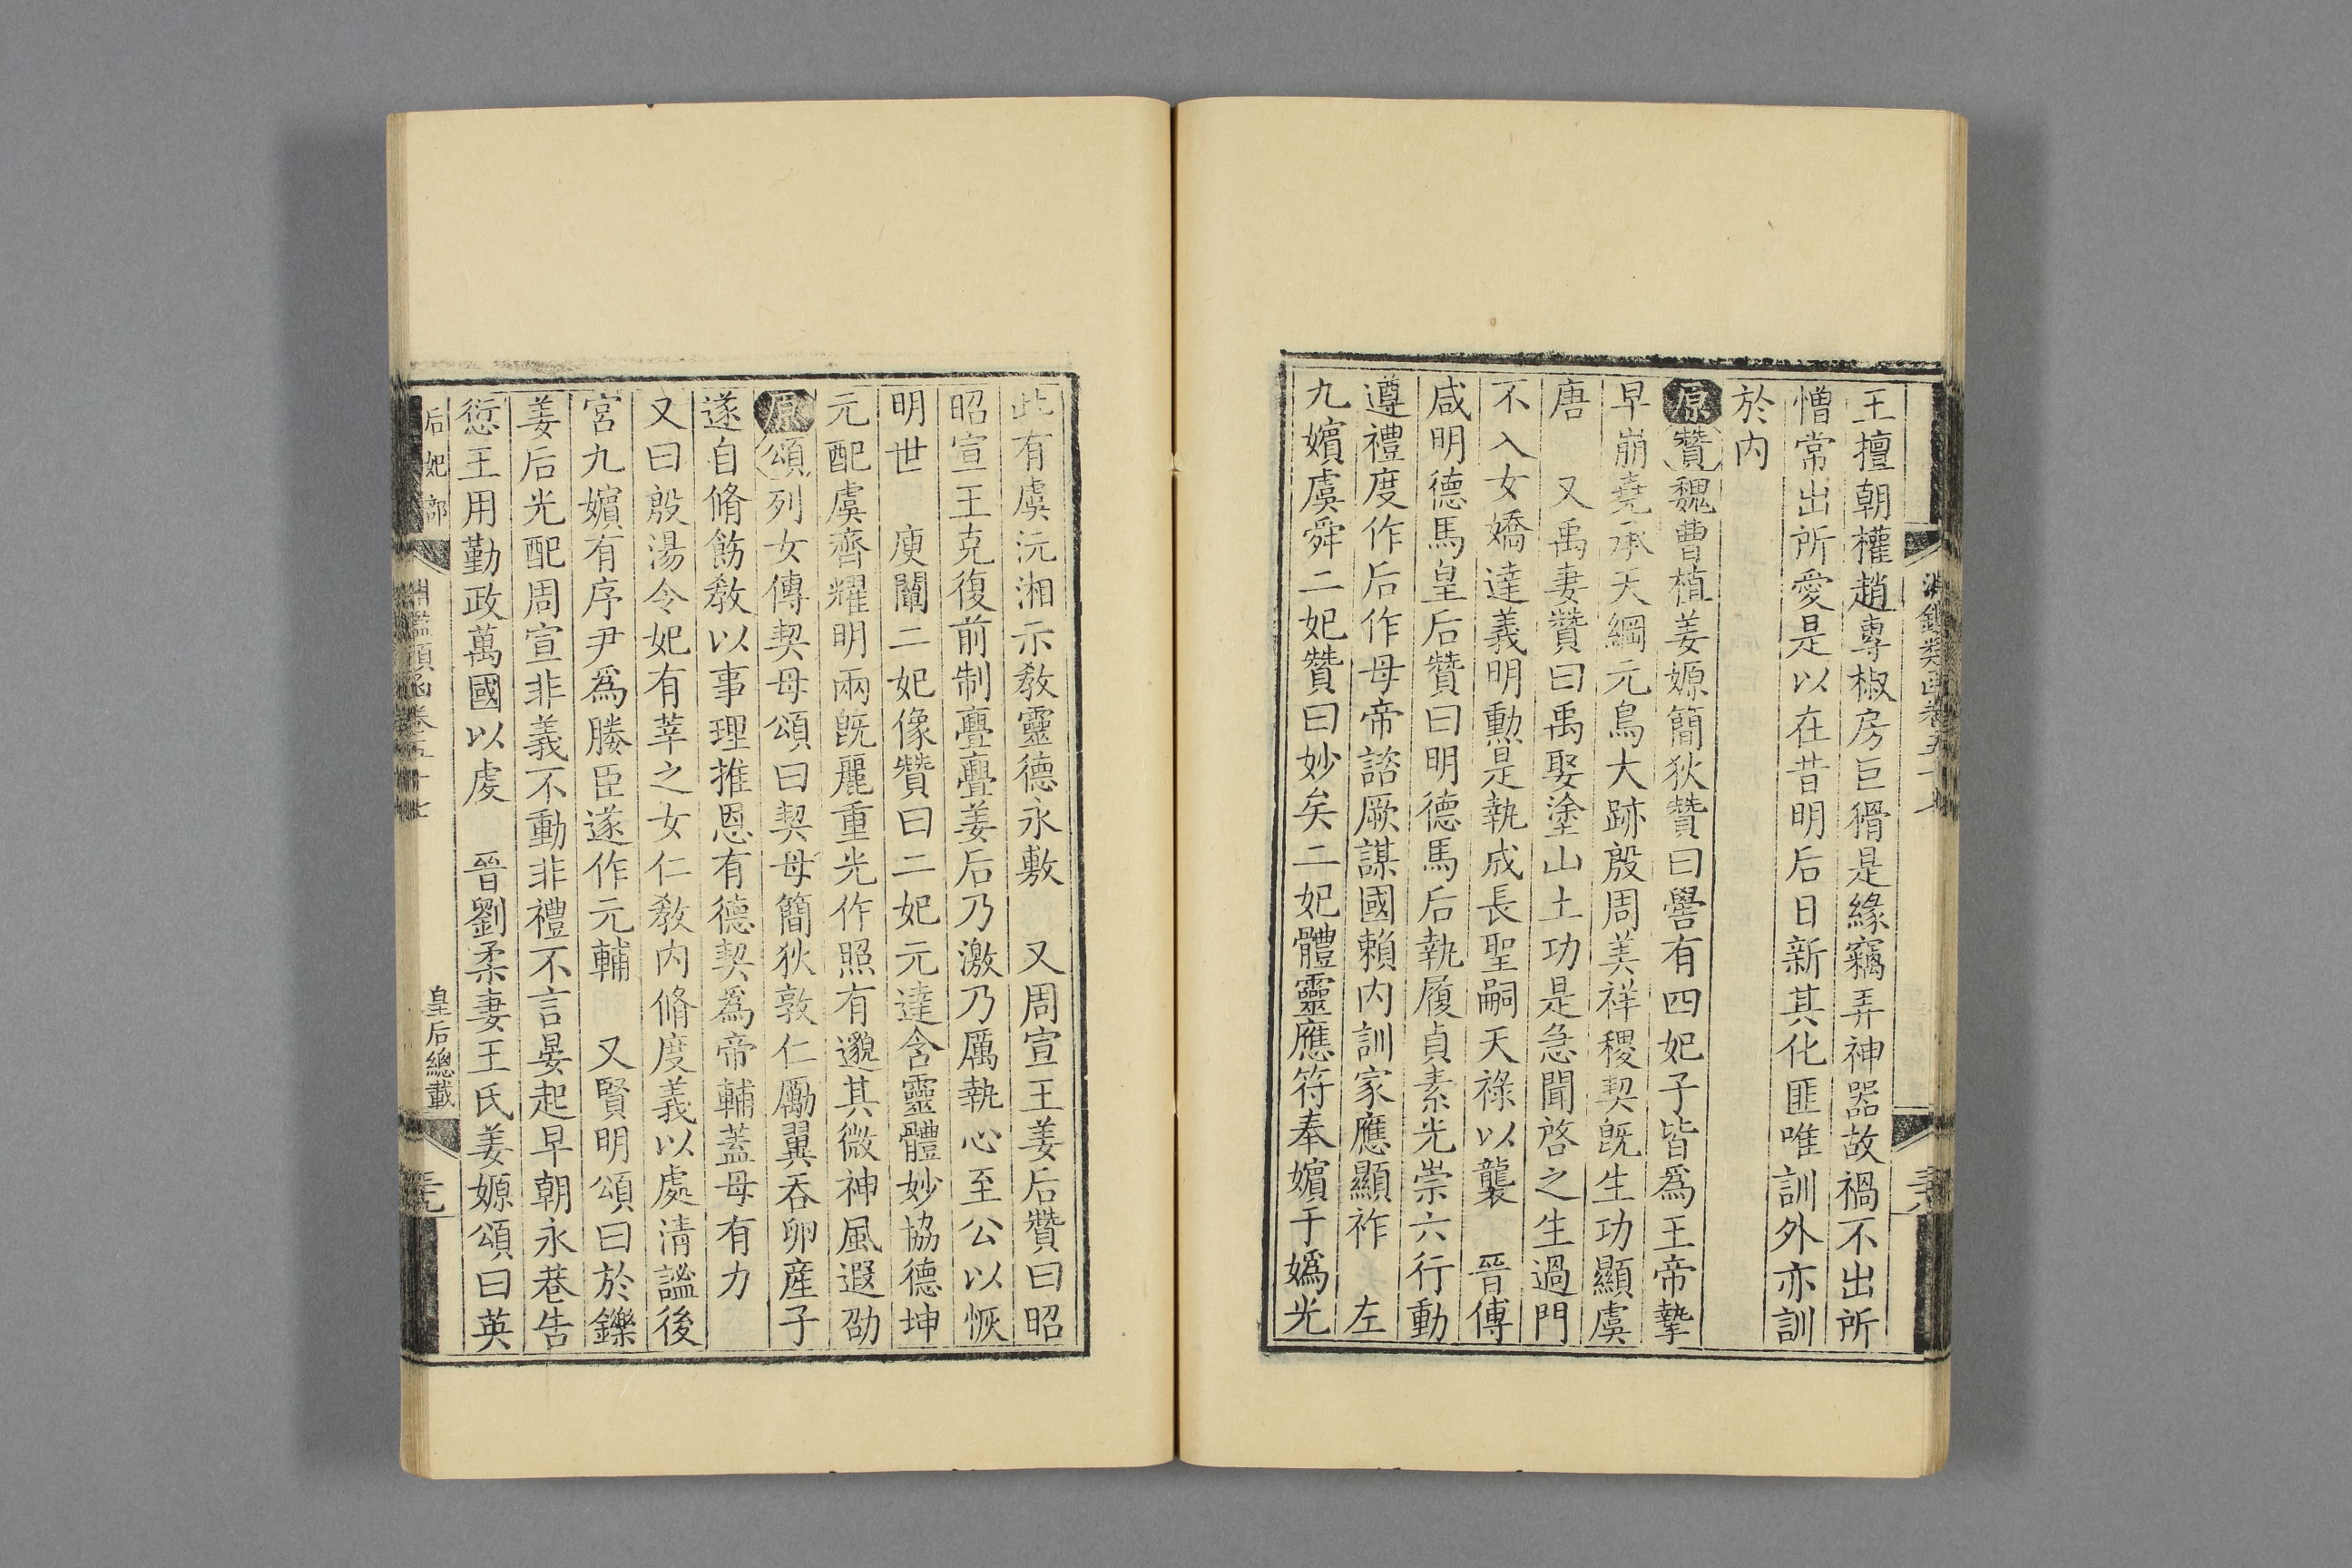 淵鑑類函卷五十七
王擅朝權趙專椒房巨猾是緣竊弄神器故禍不出所
憎常出所愛是以在昔明后日新其化匪唯訓外亦訓
於内
原贊魏曹植姜嫄簡狄贊曰嚳有四妃子皆爲王帝摯
早崩堯承天綱元鳥大跡殷周美祥稷契旣生功顯虞
唐　又禹妻贊曰禹娶塗山土功是急聞啓之生過門
不入女嬌達義明勳是執成長聖嗣天祿以襲　晉傅
咸明德馬皇后贊曰明德馬后執履貞素光崇六行動
遵禮度作后作母帝諮厥謀國賴内訓家應顯祚　左
九嬪虞舜二妃贊曰妙矣二妃體靈應符奉嬪于嬀光
此有虞沅湘示敎靈德永敷　又周宣王姜后贊曰昭
昭宣王克復前制亹亹姜后乃激乃厲執心至公以恢
明世　庾闡二妃像贊曰二妃元達含靈體妙協德坤
元配虞齊耀明兩旣麗重光作照有邈其微神風遐劭
原頌列女傳契母頌曰契母簡狄敦仁勵翼吞卵産子
遂自脩飭敎以事理推恩有德契爲帝輔蓋母有力
又曰殷湯令妃有莘之女仁敎内脩度義以處淸謐後
宮九嬪有序尹爲媵臣遂作元輔　又賢明頌曰於鑠
姜后光配周宣非義不動非禮不言晏起早朝永巷告
愆王用勤政萬國以虔　晉劉柔妻王氏姜嫄頌曰英
后妃部　淵鑑類函卷五十七　皇后總載　三十九